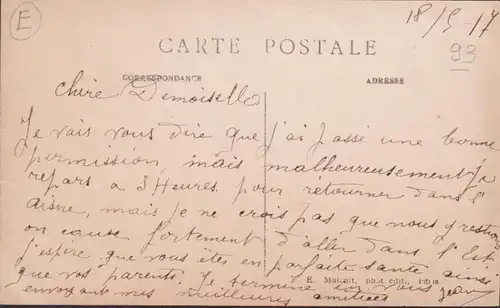 E
18/5-17
93
CARTE POSTALE
CORRESPONDANCE
ADRESSE
Chère Demoiselle
Je vais vous dire que j'ai passé une bonne
permission, mais malheureusement je
repars a 3 Heures pour retourner dans l'
aisne, mais je ne crois pas que nous y restions
on cause fortement d'aller dans l'Est
j'espère que vous êtes en parfaite santé ainsi
que vos parents. Je termine en vous
envoyant mes meilleures amitiées
E. phot. édit., Paris